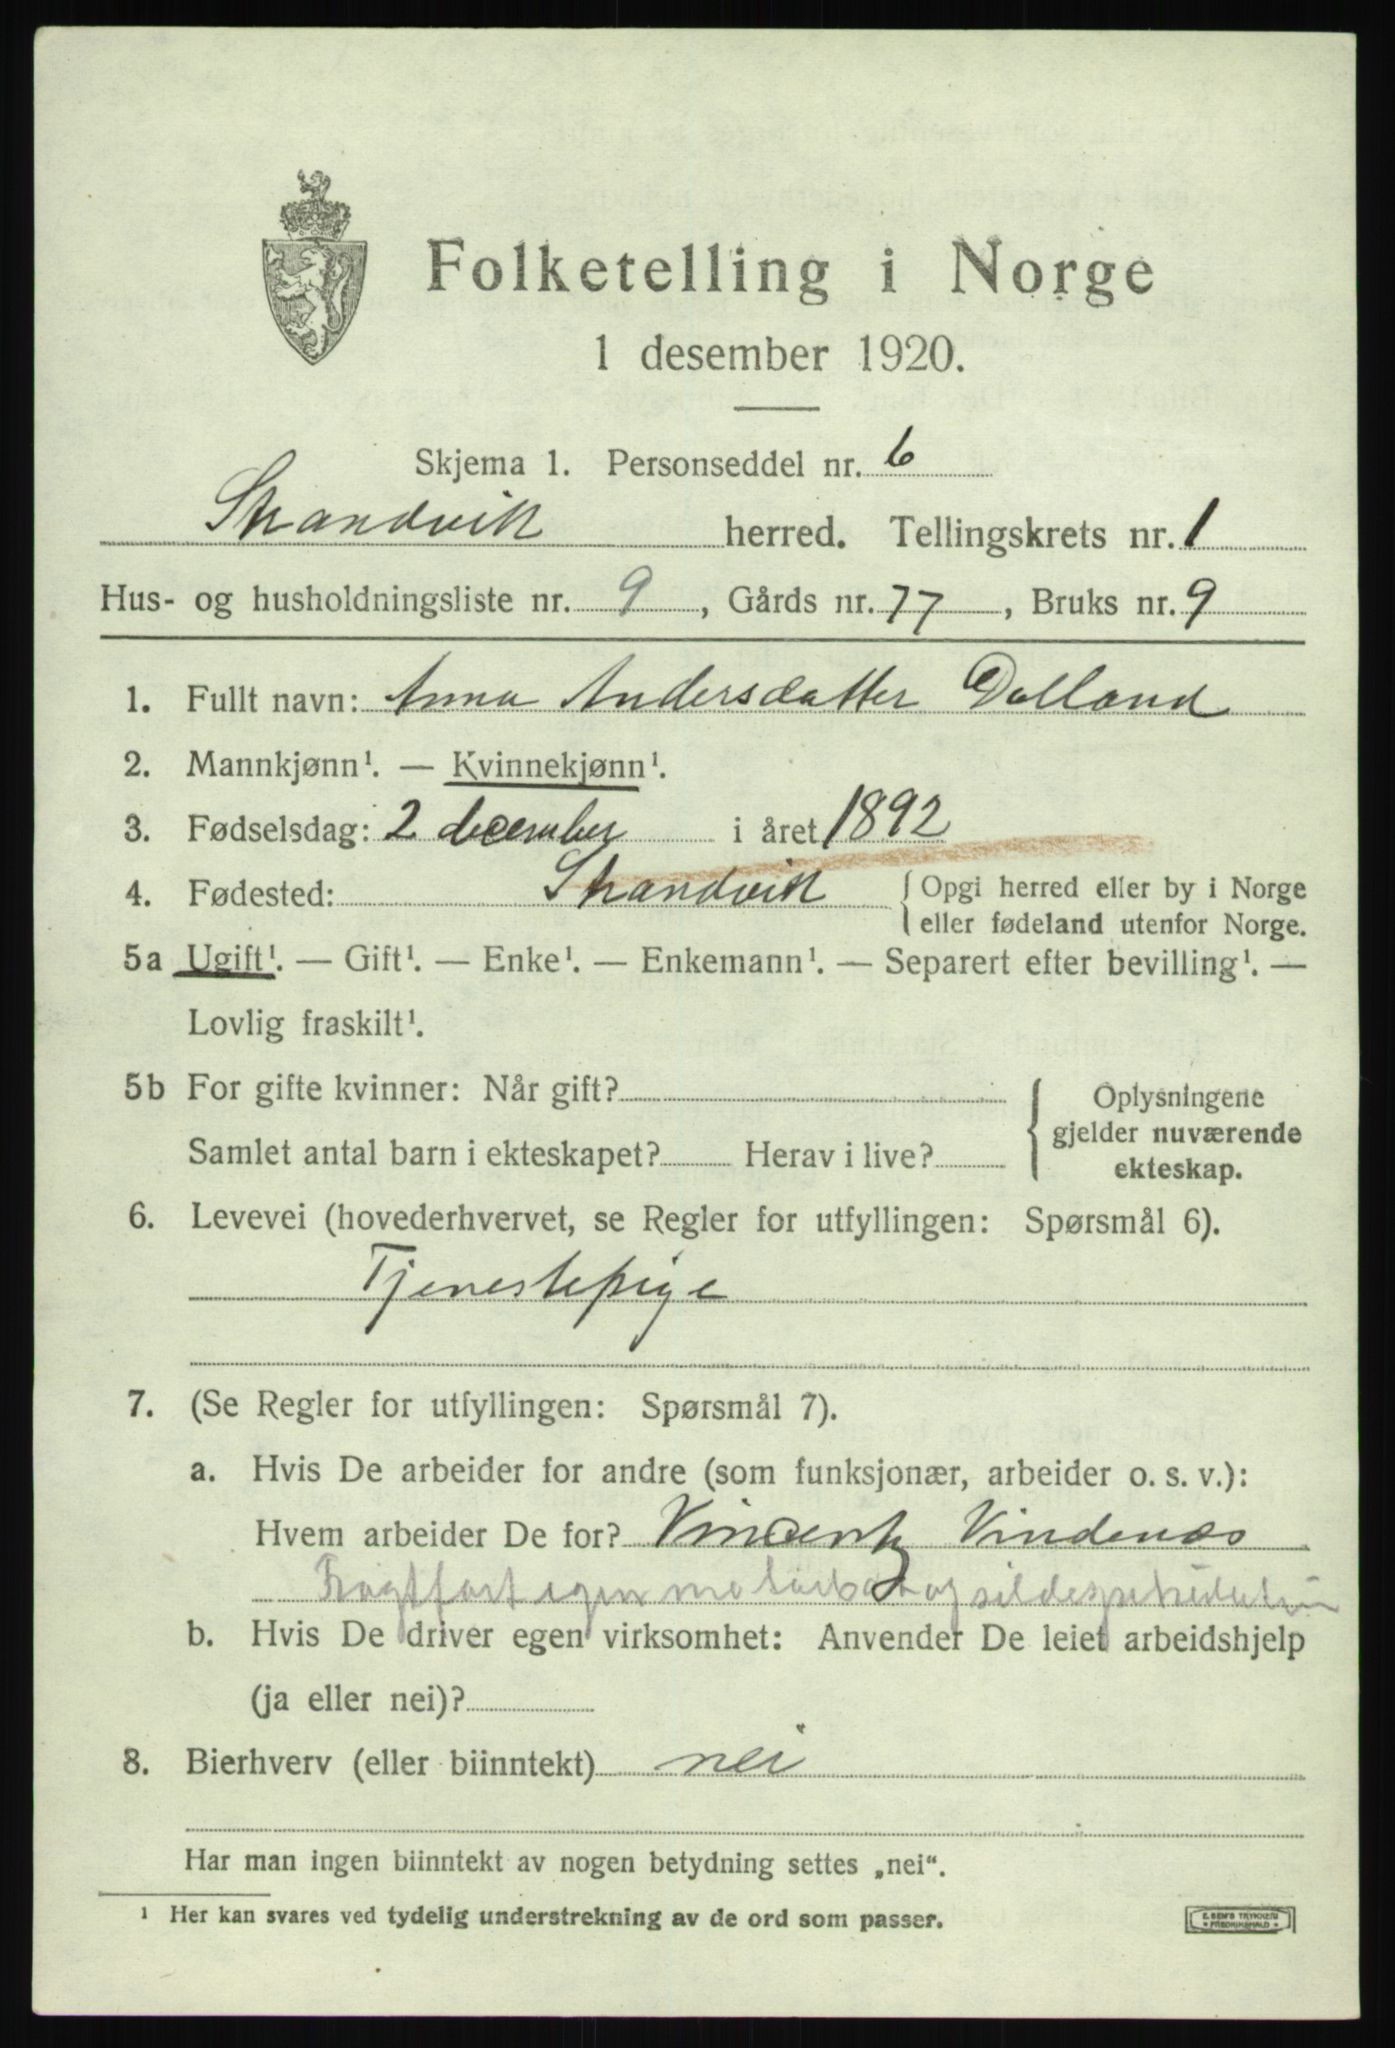 Folketelling i Norge
1 desember 1920.
Skjema 1. Personseddel nr. 6
Strandvik herred. Tellingskrets nr. 1
Hus- og husholdningsliste nr. 9, Gårds nr. 77, Bruks nr. 9
1. Fullt navn: Anna Andersdatter Dalland
2. Mannkjønn¹. — Kvinnekjønn¹.
3. Fødselsdag: 2 december i året 1892
4. Fødested: Strandvik { Opgi herred eller by i Norge
eller fødeland utenfor Norge.
5a Ugift¹. — Gift¹. — Enke¹. — Enkemann¹. — Separert efter bevilling¹. —
Lovlig fraskilt¹.
5b For gifte kvinner: Når gift? { Oplysningene
gjelder nuværende
Samlet antal barn i ekteskapet? Herav i live?
ekteskap.
6. Levevei (hovederhvervet, se Regler for utfyllingen: Spørsmål 6).
Tjenestepige
7. (Se Regler for utfyllingen: Spørsmål 7).
a. Hvis De arbeider for andre (som funksjonær, arbeider o. s. v.):
Hvem arbeider De for? Vincentz Vindenæs
Fragtfart egen og
b. Hvis De driver egen virksomhet: Anvender De leiet arbeidshjelp
(ja eller nei)?
8. Bierhverv (eller biinntekt) nei
Har man ingen biinntekt av nogen betydning settes „nei“.
¹ Her kan svares ved tydelig understrekning av de ord som passer.